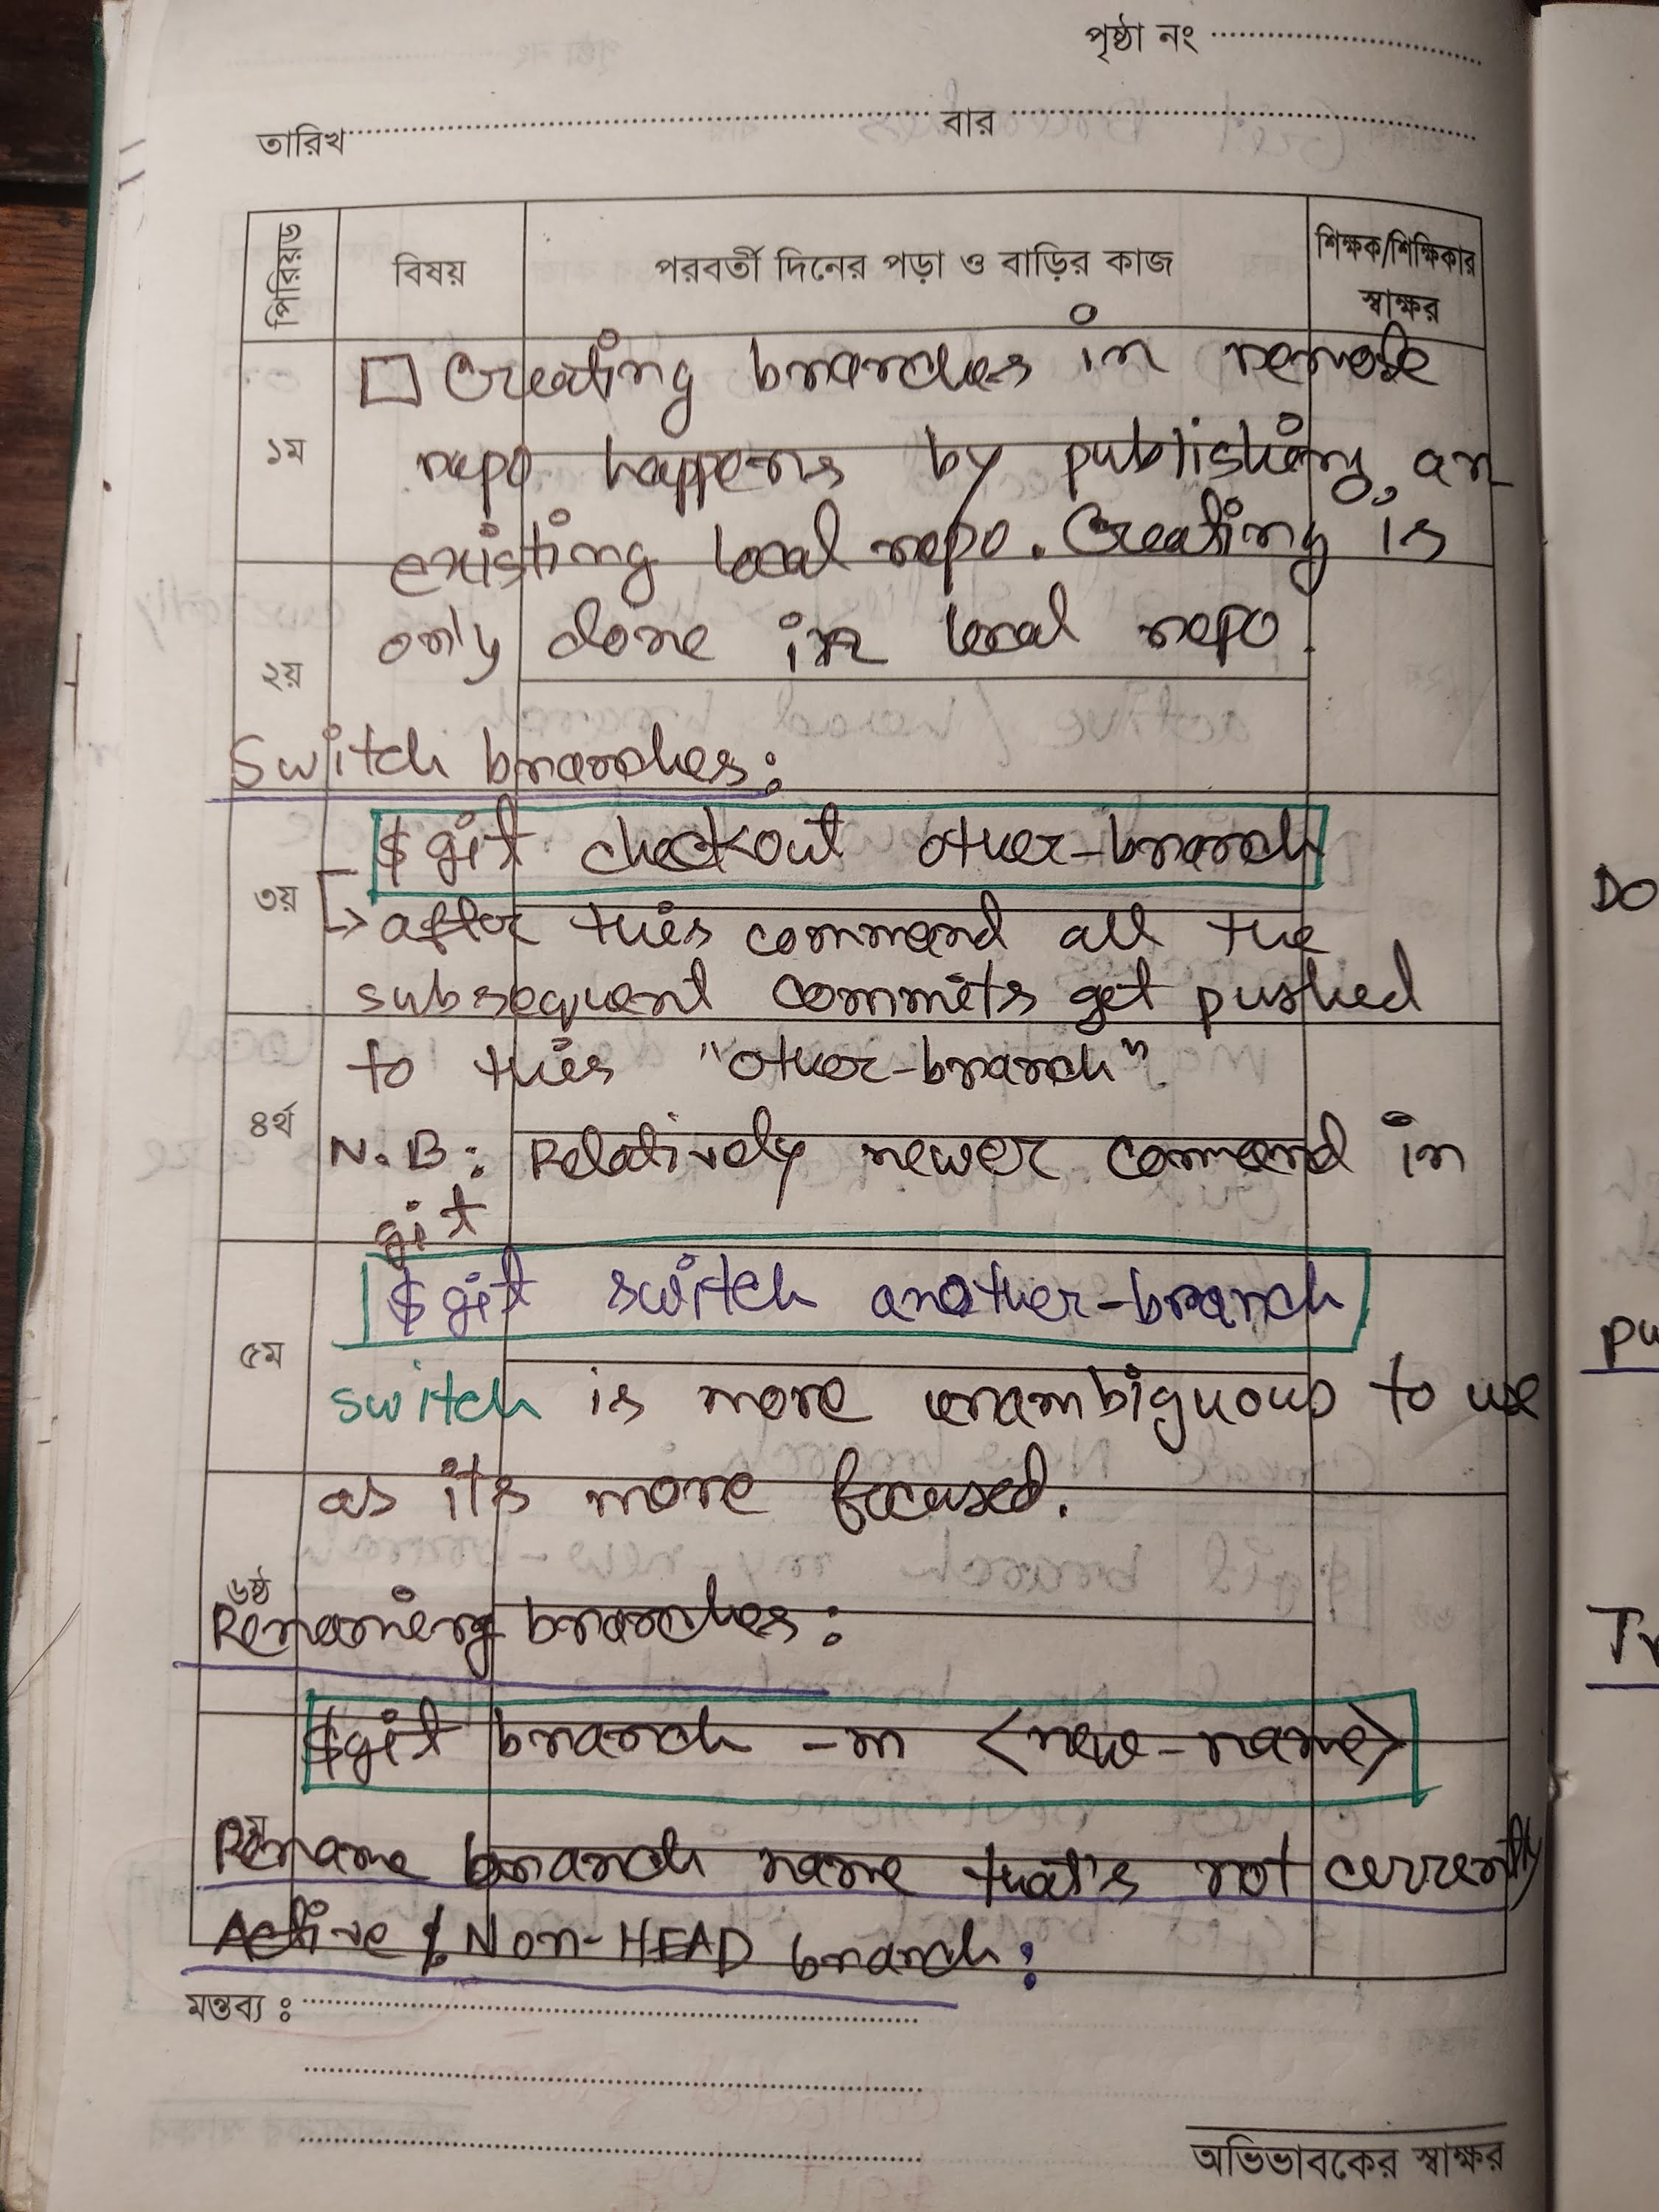 পৃষ্ঠা নং
তারিখ বার
পিরিয়ড বিষয় পরবর্তী দিনের পড়া ও বাড়ির কাজ শিক্ষক/শিক্ষিকার স্বাক্ষর
Creating branches in remote
১ম
repo happens by publishing an
existing local repo. Creating is
only done in local repo.
২য়
Switch branches:
$git checkout other-branch
৩য়
→ after this command all the
subsequent commits get pushed
to this "other-branch".
৪র্থ
N.B: Relatively newer command in
git
$git switch another-branch
৫ম
switch is more unambiguous to use
as it's more focused.
৬ষ্ঠ
Renaming branches:
$git branch -m <new-name>
৭ম
Rename branch name that's not currently
Active & Non-HEAD branch:
মন্তব্য ঃ
অভিভাবকের স্বাক্ষর
DO